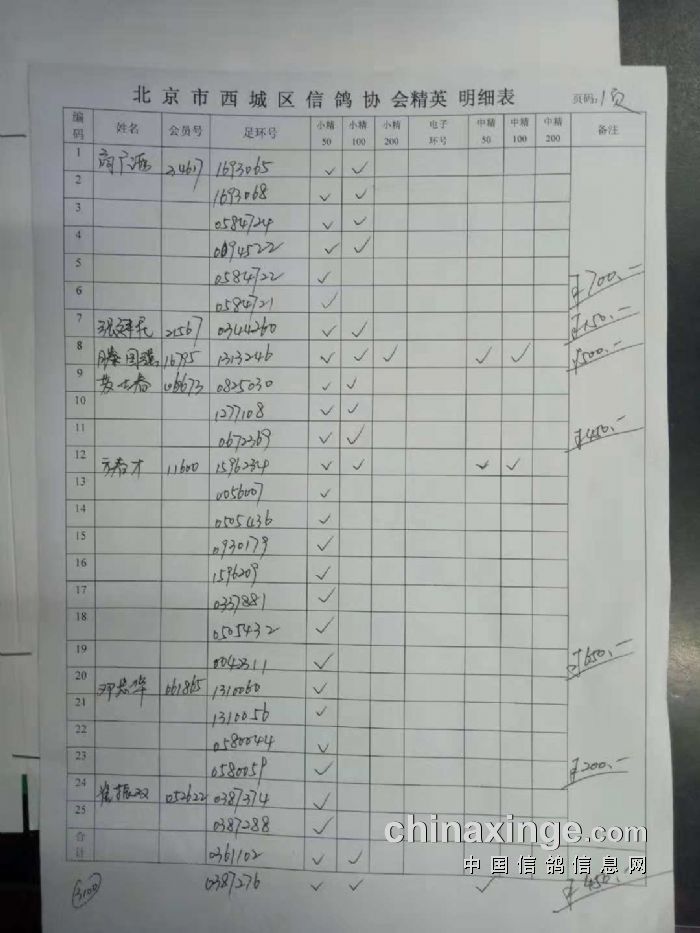 北京市西城区信鸽协会精英 明细表 页码:1页
编码 姓名 会员号 足环号 小精50 小精100 小精200 电子环号 中精50 中精100 中精200 备注
1 24617 1693065 ✓ ✓
2 1693068 ✓ ✓
3 0584724 ✓ ✓
4 0094522 ✓ ✓
5 0584722 ✓
6 0584721 ✓ ¥700.-
7 21567 0344260 ✓ ✓ ¥150.-
8 滕国强 16795 1313246 ✓ ✓ ✓ ✓ ✓ ¥500.-
9 06673 0825030 ✓ ✓
10 1277108 ✓ ✓
11 0672369 ✓ ✓ ¥450.-
12 11600 1596234 ✓ ✓ ✓ ✓
13 0056007 ✓
14 0505436 ✓
15 0930179 ✓
16 1596209 ✓
17 0337881 ✓
18 0505432 ✓
19 0042311 ✓ ¥650.-
20 061865 1310060 ✓
21 1310056 ✓
22 0580044 ✓
23 0580059 ✓ ¥200.-
24 崔振双 052622 0387374 ✓
25 0387288 ✓
合计 0361102 ✓ ✓
3100 0387276 ✓ ✓ ✓ ¥450.-
chinaxinge.com
中国信鸽信息网